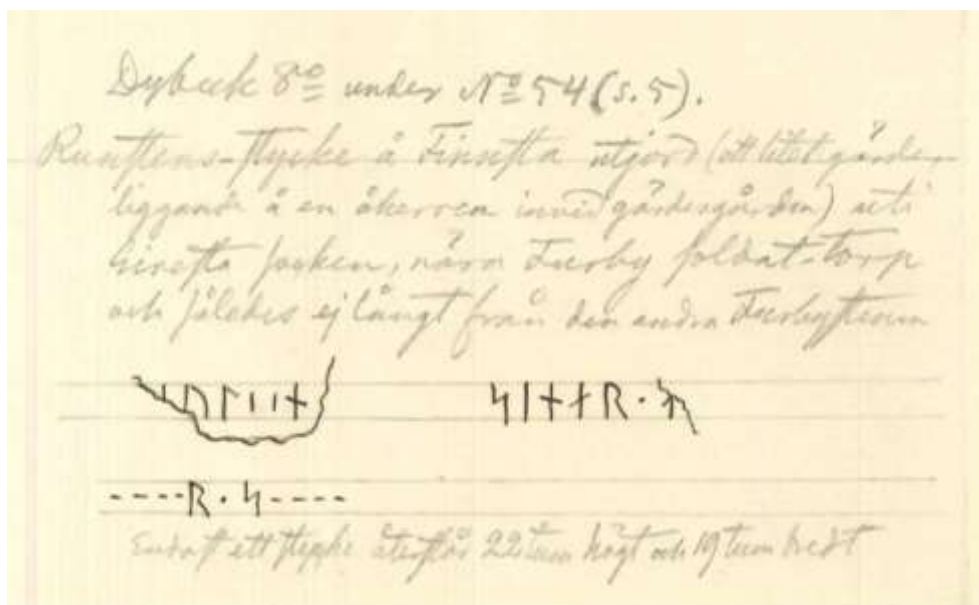 Dybeck 8º under Nº 54 (s. 5).
Runstens-stycke å Finnsta utjord (ett litet gärde
liggande å en åkerren invid gärdesgården) uti
sin socken, nära Furby soldat-torp
och således ej långt från den andra Furbystenen
ᛋᛁᚾᛅᚱ ·
----ᚱ · ᛋ-----
Endast ett stycke återstår 22 tum högt och 19 tum bredt